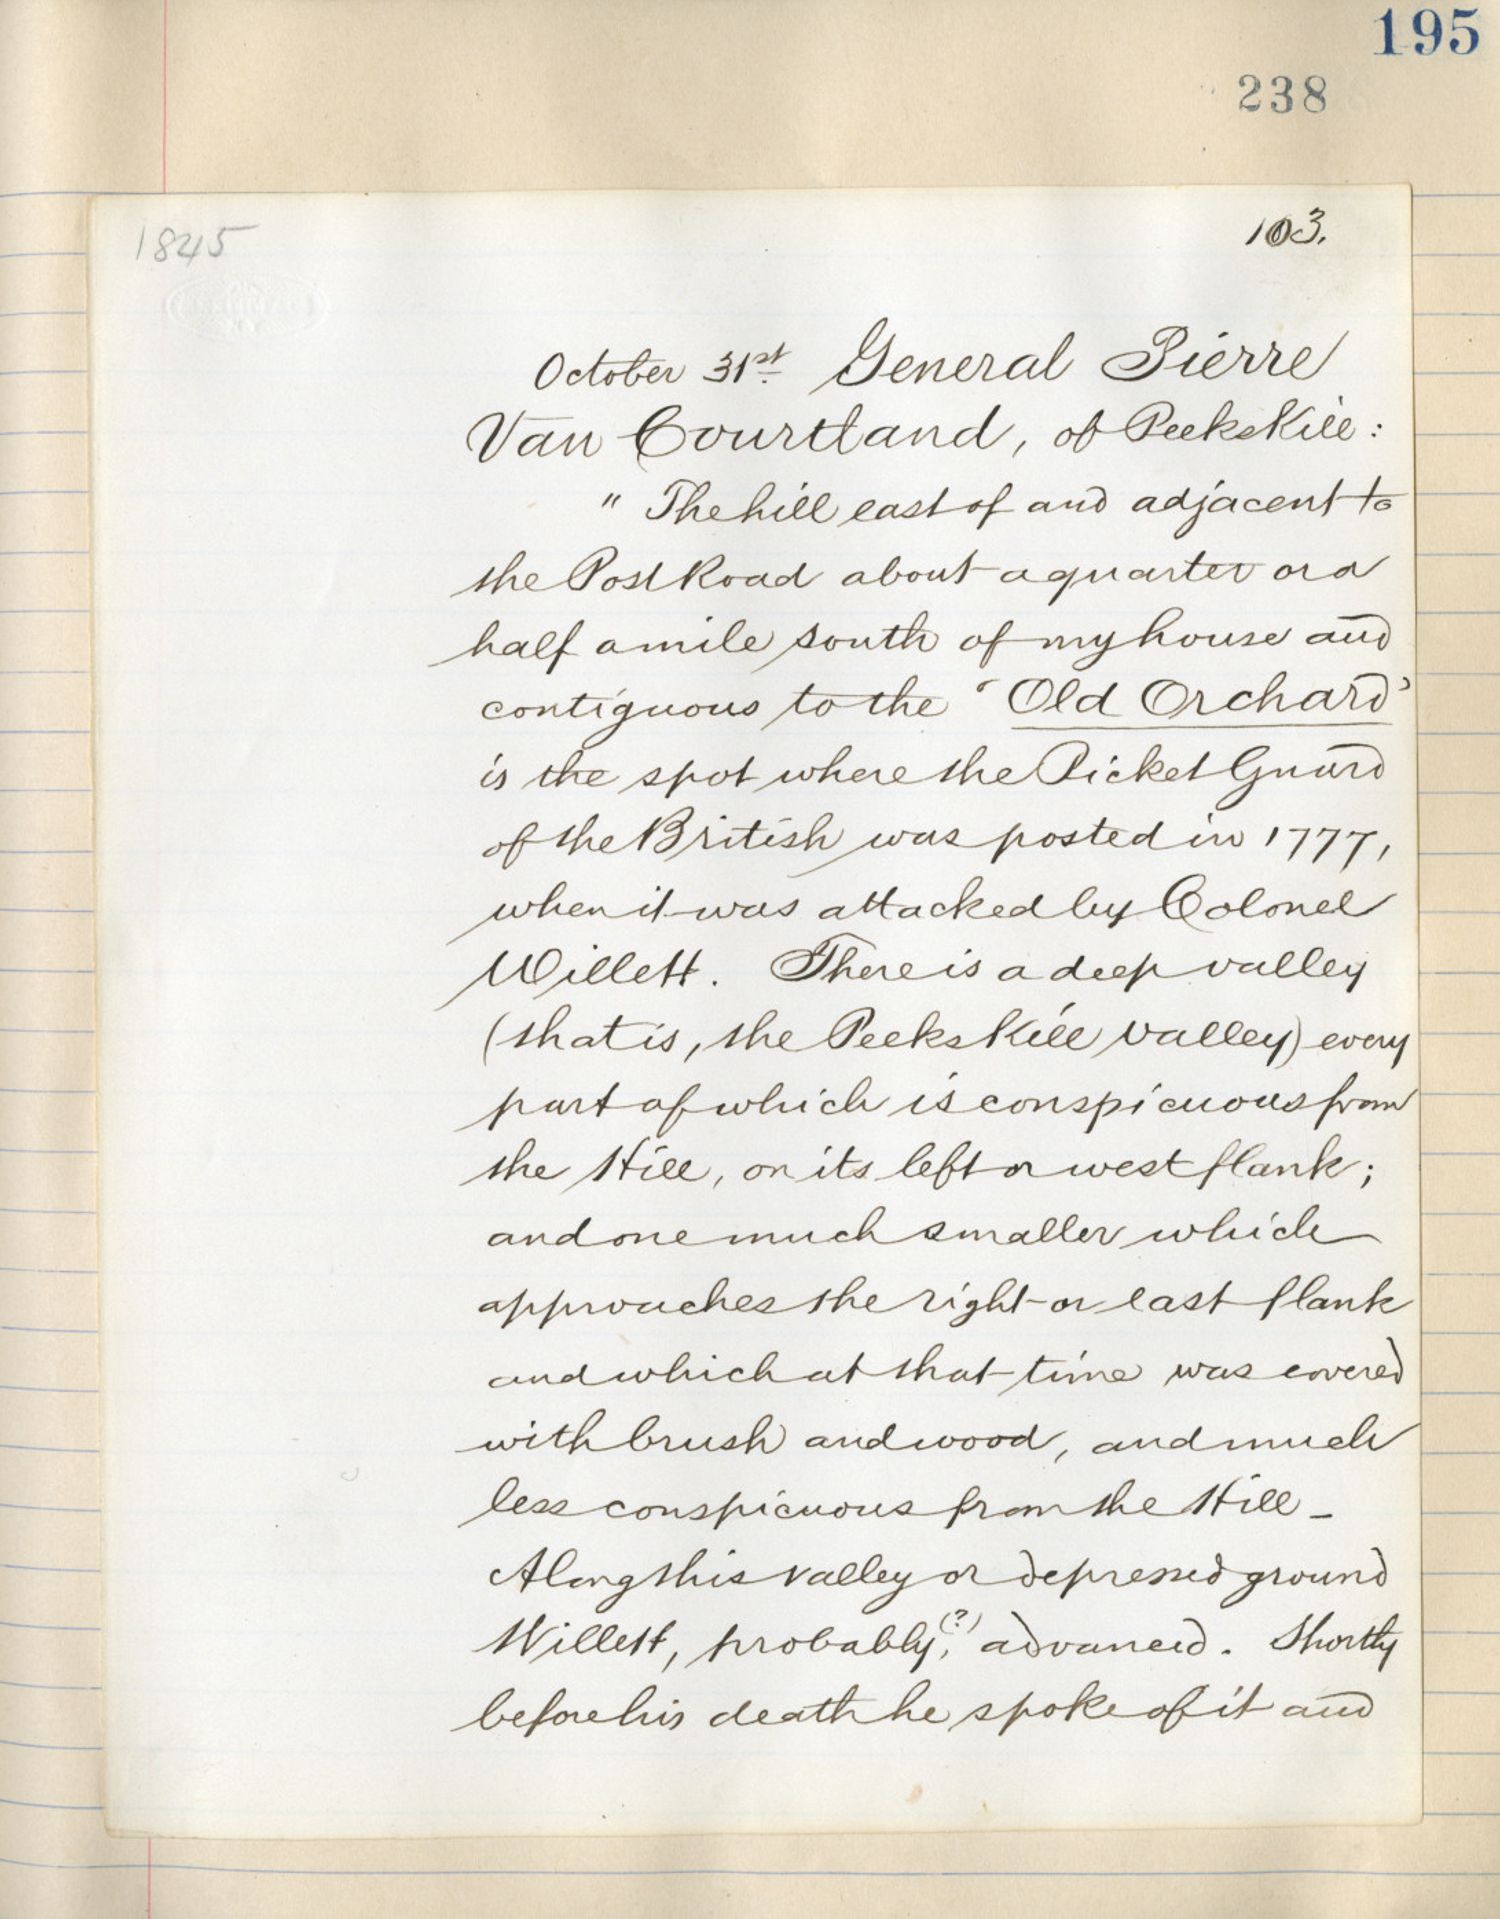 195
238
1845
103.
October 31st. General Pierre
Van Courtland, of Peekskill:
" The hill east of and adjacent to
the Post Road about a quarter or a
half a mile south of my house and
contiguous to the 'Old Orchard'
is the spot where the Picket Guard
of the British was posted in 1777,
when it was attacked by Colonel
Willett. There is a deep valley
(that is, the Peekskill valley) every
part of which is conspicuous from
the Hill, on its left or west flank;
and one much smaller which
approaches the right or east flank
and which at that time was covered
with brush and wood, and much
less conspicuous from the Hill -
Along this valley or depressed ground
Willett, probably, (?) advanced. Shortly
before his death he spoke of it and